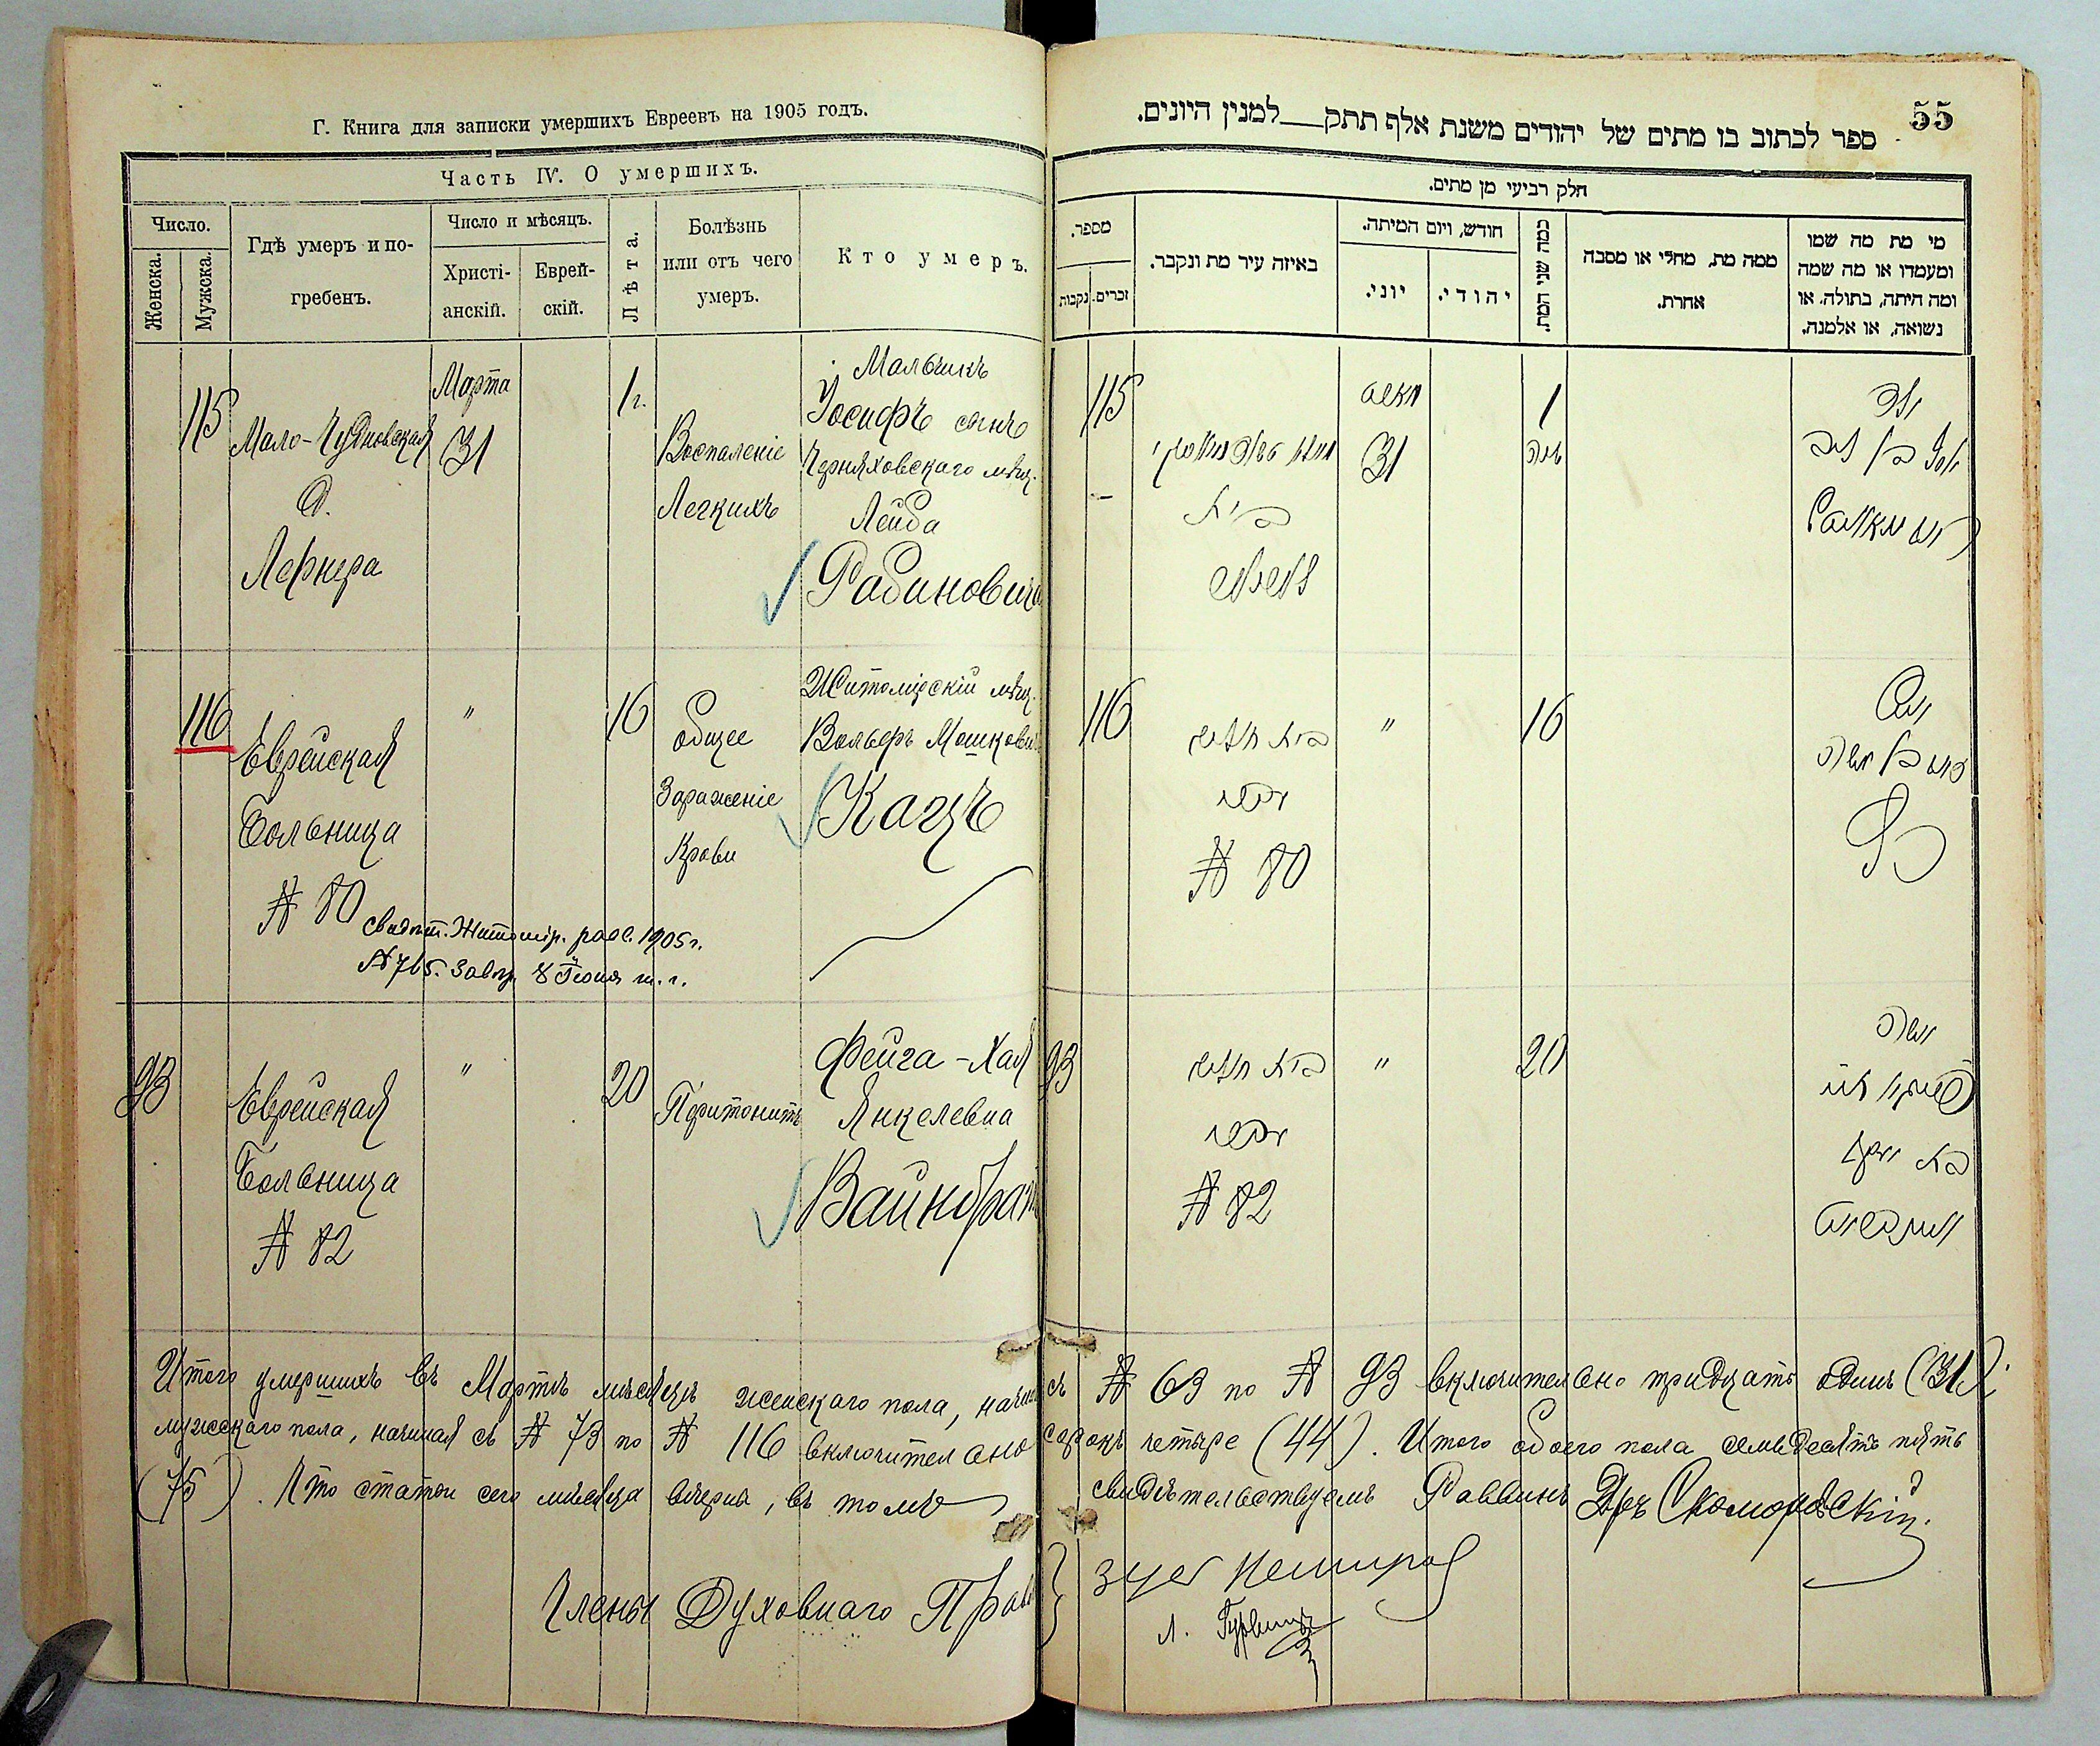 Г. Книга для записки умершихъ Евреевъ на 1905 годъ.
Часть IV. О умершихъ.
Число.
Женска.
Мужска.
Гдѣ умеръ и по-
гребенъ.
Число и мѣсяцъ.
Христі-
анскій.
Еврей-
скій.
Лѣта.
Болѣзнь
или отъ чего
умеръ.
Кто умеръ.
115
Мало-Чудновская
д.
Лернера
Марта
31
1 г.
Воспаленіе
Легкихъ
Мальчикъ
Іосифъ сынъ
Черняховскаго мѣщ.
Лейба
Рабиновича
116
Еврейская
Больница
№ 80
"
16
Общее
Зараженіе
Крови
Житомірскій мѣщ.
Вольфъ Мошкович
Кацъ
1905 г.
№ 765.
8 Іюня т. г.
93
Еврейская
Больница
№ 82
"
20
Перитонитъ
Фейга-Хая
Янкелевна
55
ספר לכתוב בו מתים של יהודים משנת אלף תתק למנין היונים.
חלק רביעי מן מתים.
מספר.
נקבות
זכרים.
באיזה עיר מת ונקבר.
חודש, ויום המיתה.
יוני.
יהודי.
כמה שני המת.
ממה מת, מחלי או מסבה
אחרת.
מי מת מה שמו
ומעמדו או מה שמה
ומה היתה, בתולה, או
נשואה, או אלמנה.
115
31
1
שנה
ילד
יוסף בן ליב
ראבינאוויטש
בית
לערנער
116
בית חולים
№ 80
"
16
וואלף בן משה
כץ
93
בית חולים
№ 82
"
20
פייגא חיה
בת יענקל
Итого умершихъ въ Мартѣ мѣсяцѣ женскаго пола, начиная съ № 63 по № 93 включительно тридцать одинъ (31);
мужескаго пола, начиная съ № 73 по № 116 включительно сорокъ четыре (44). Итого обоего пола семьдесятъ пять
(75). Что статьи сего мѣсяца вѣрны, въ томъ свидѣтельствуемъ Раввинъ Д-ръ Скоморовскій.
Члены Духовнаго Прав
Л. Гурвичъ